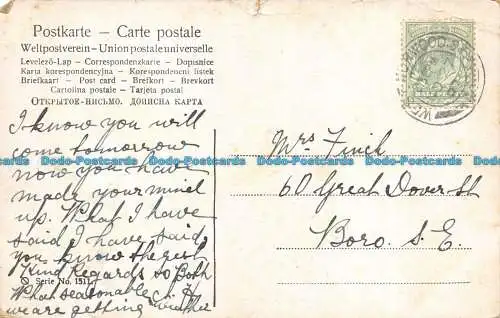 Postkarte – Carte postale
Weltpostverein – Union postale universelle
Levelező-Lap – Correspondenzkarte – Dopisnice
Karta korespondencyjna – Korespondencni listek
Briefkaart – Post card – Brefkort – Brevkort
Cartolina postale – Tarjeta postal
Открытое-письмо. Дописна карта
I know you will
come tomorrow
now you have
made your mind
up. What I have
said I have said
you know the rest
Kind Regards to Both
What seasonable
we are getting
Serie No. 1511
Mrs Finch
60 Great Dover St
Boro. S. E.
Dodo-Postcards Dodo-Postcards Dodo-Postcards Dodo-Postcards
Dodo-Postcards Dodo-Postcards Dodo-Postcards Dodo-Postcards